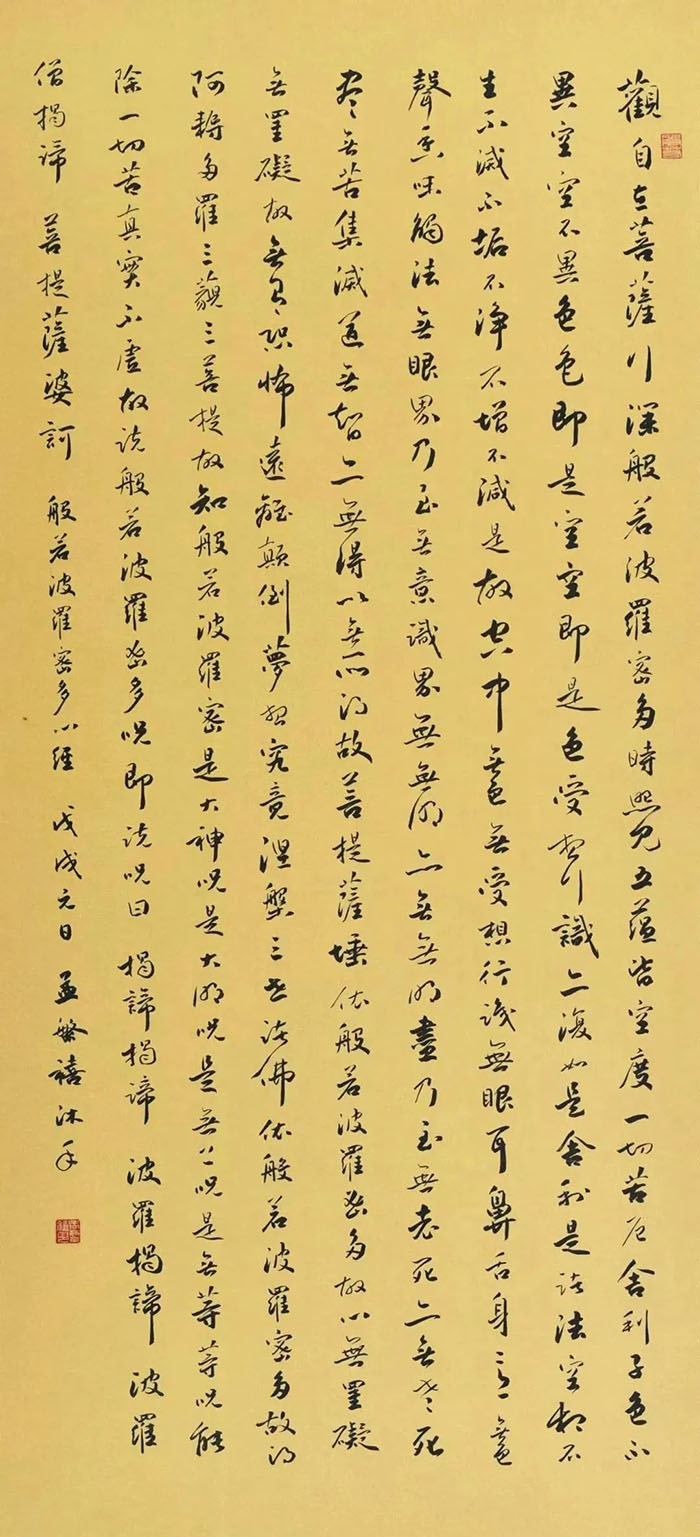 觀自在菩薩行深般若波羅密多時照見五蘊皆空度一切苦厄舍利子色不
異空空不異色色即是空空即是色受想行識亦復如是舍利是諸法空相不
生不滅不垢不淨不增不減是故空中無色無受想行識無眼耳鼻舌身意無色
聲香味觸法無眼界乃至無意識界無無明亦無無明盡乃至無老死亦無老死
盡無苦集滅道無智亦無得以無所得故菩提薩埵依般若波羅密多故心無罣礙
無罣礙故無有恐怖遠離顛倒夢想究竟涅槃三世諸佛依般若波羅密多故得
阿耨多羅三藐三菩提故知般若波羅密是大神咒是大明咒是無上咒是無等等咒能
除一切苦真實不虛故說般若波羅密多咒即說咒曰 揭諦揭諦 波羅揭諦 波羅
僧揭諦 菩提薩婆訶 般若波羅密多心經 戊戌元日 孟繁禧沐手